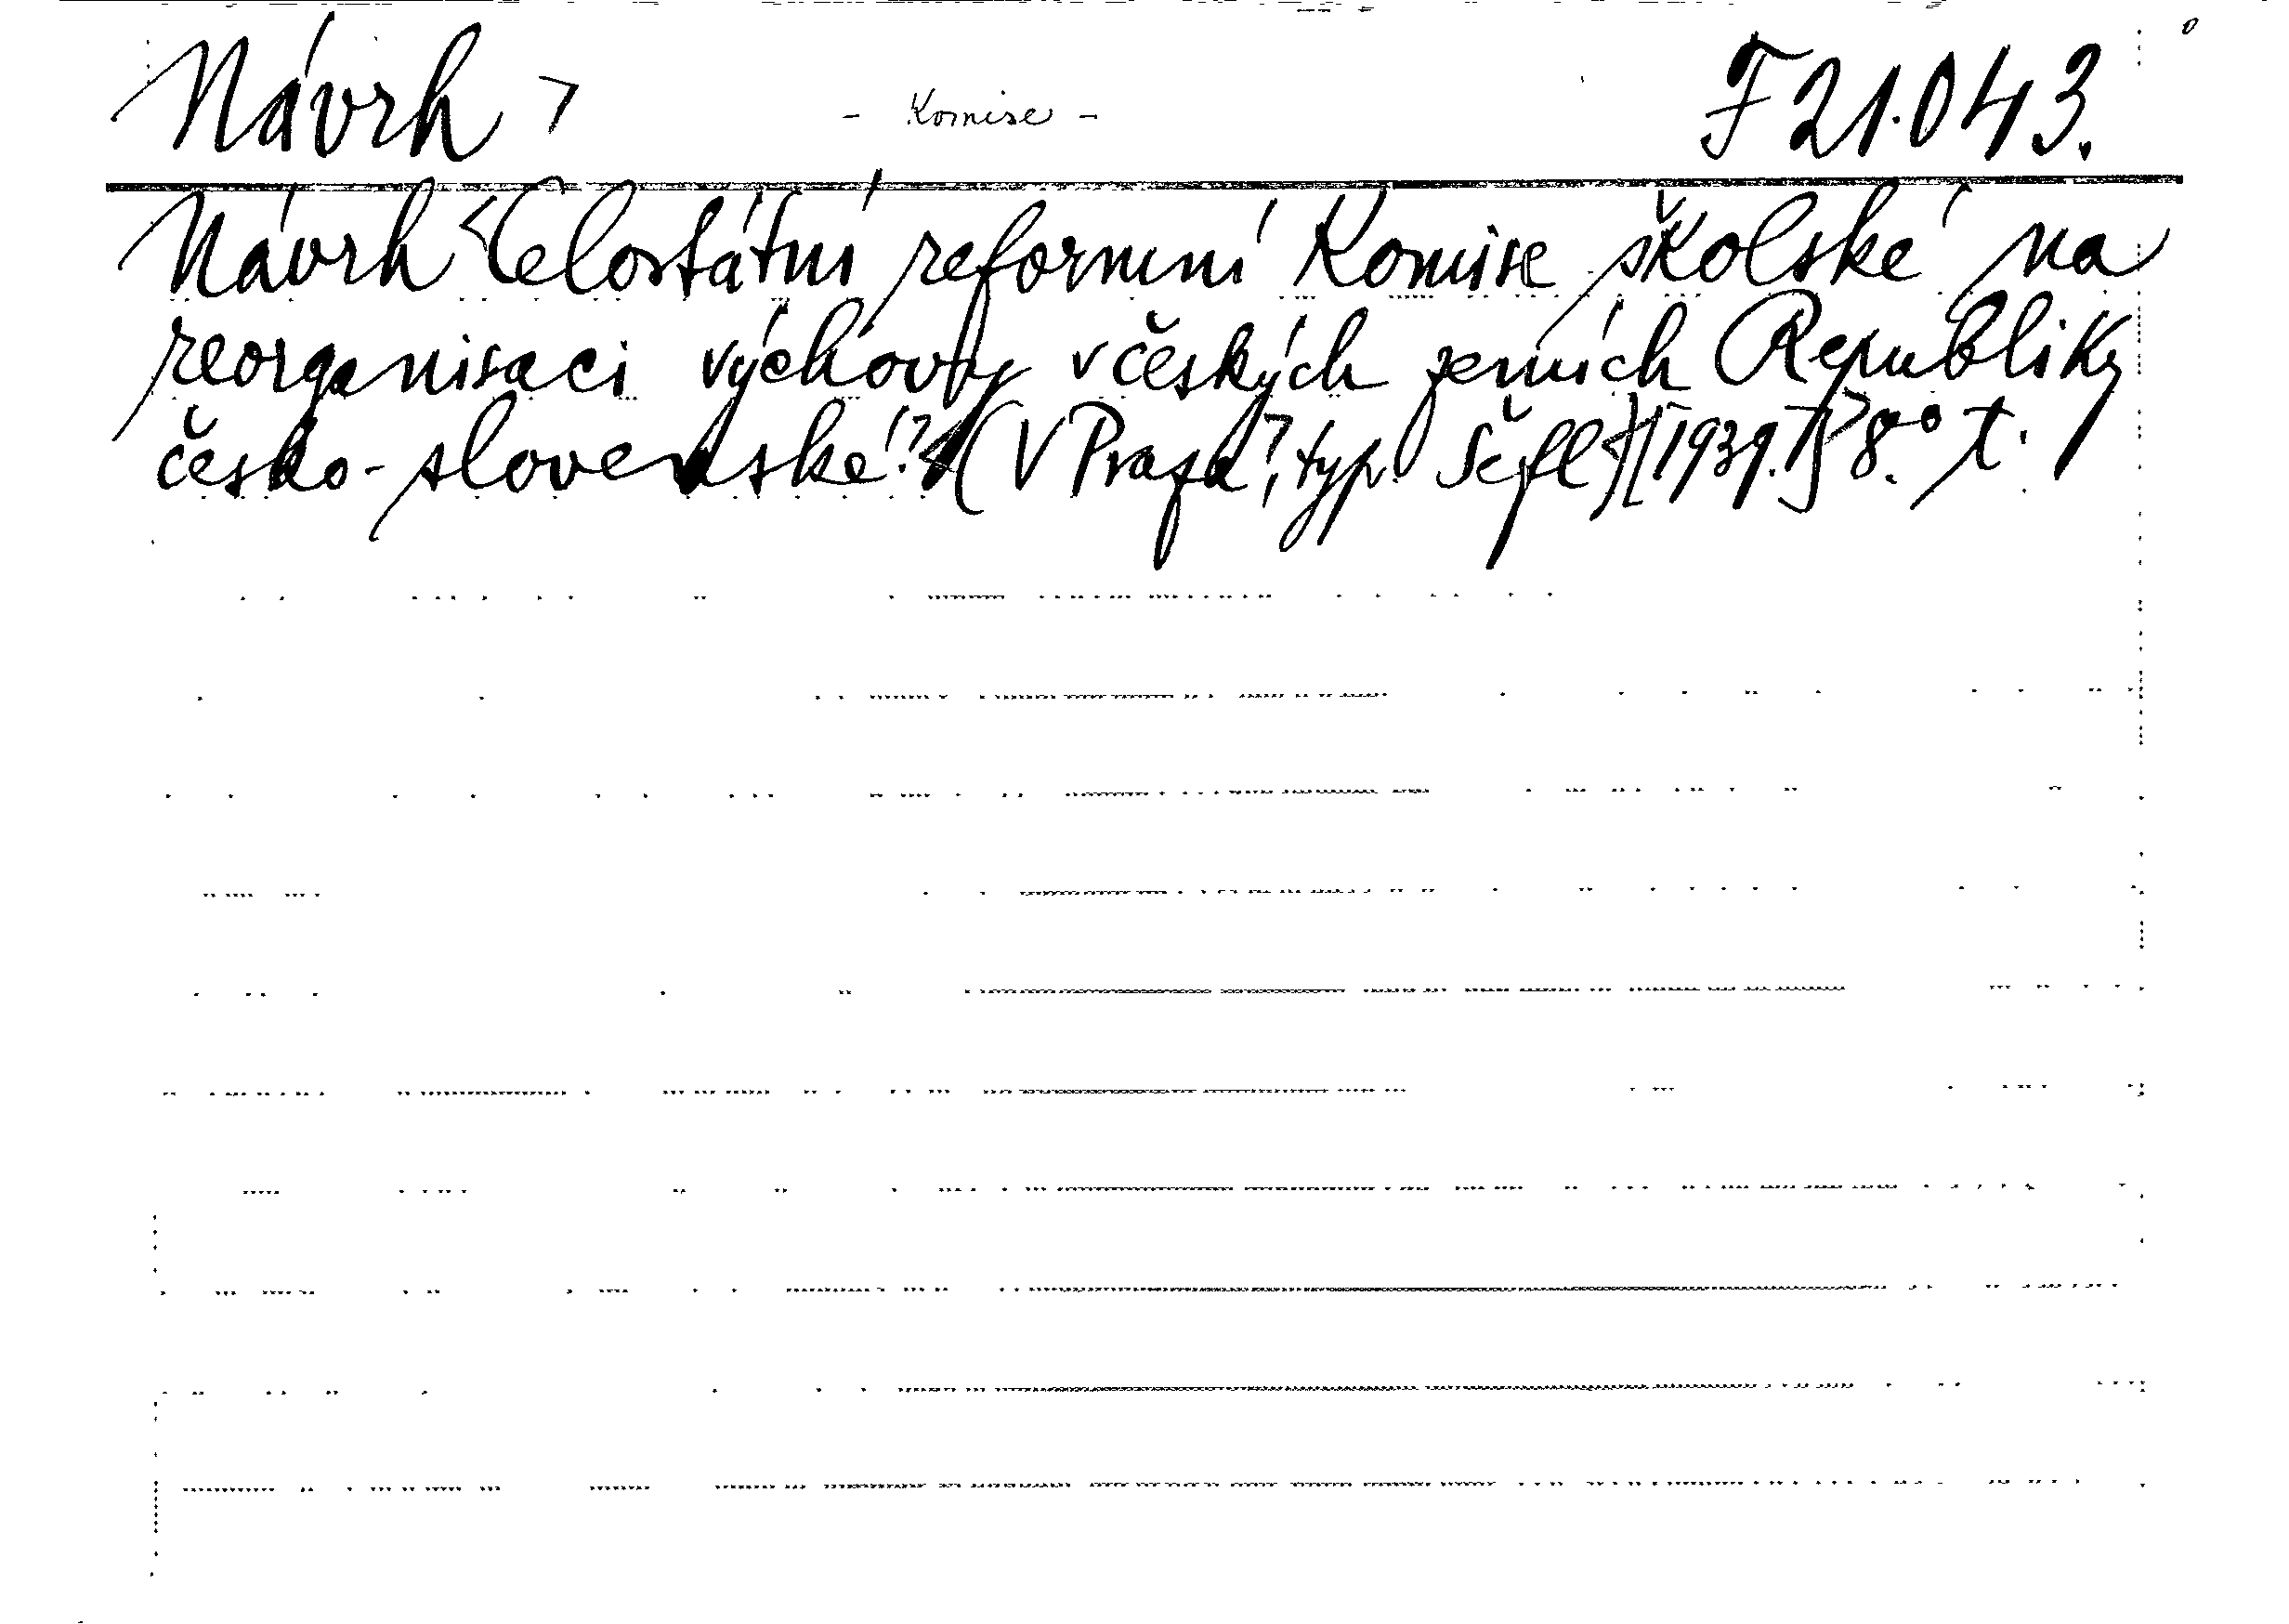 Návrh - Komise - F 21.043.
Návrh Celostátní reformní Komise školské na
reorganisaci výchovy v českých zemích Republiky
česko-slovenské. (V Praze, typ. Šefl) [1939.] 8.° t.